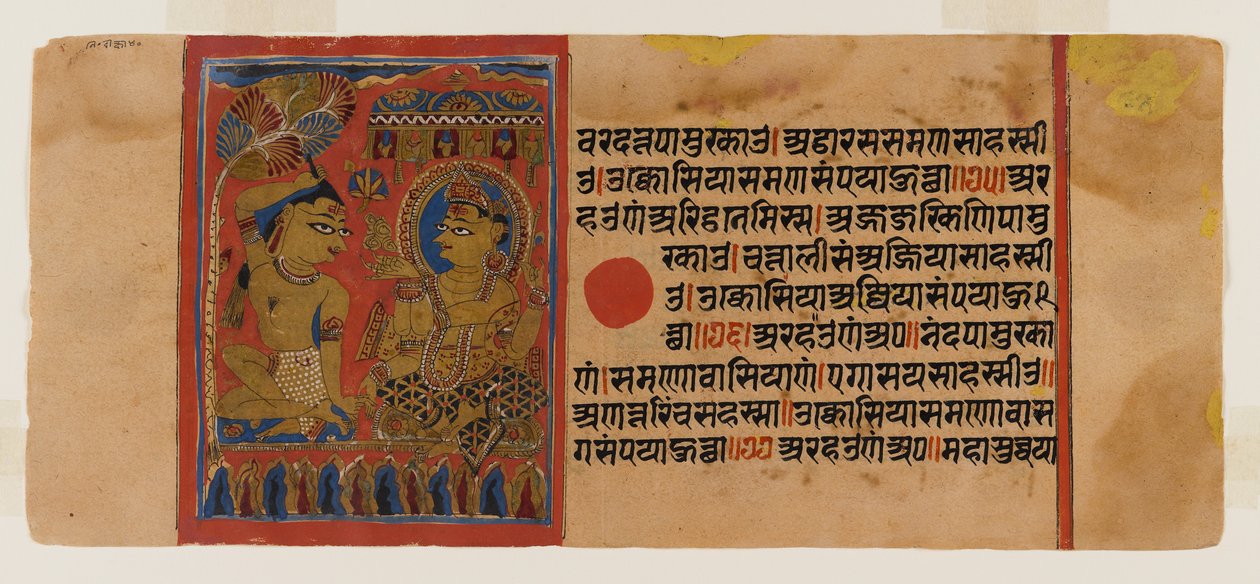 वरदत्तपामुरकाउ।अट्ठारससमणसाहस्सी
उ।उक्कोसियासमणसंपयाहुत्था॥७५।अर
हउणंअरिट्ठनेमिस्स।अज्जजरकिणिपामु
रकाउ।चत्तालीसंअज्जियासाहस्सी
उ।उक्कोसियाअज्जियासंपयाहु
त्था॥७६।अरहउणंअ०॥नंदपामुरका
णं।समणोवासियाणं।एगासयसाहस्सीउ॥
अउणत्तरिंचसहस्सा॥उक्कोसियासमणोवास
गसंपयाहुत्था॥७७अरहउणंअ०॥महासुव्वया